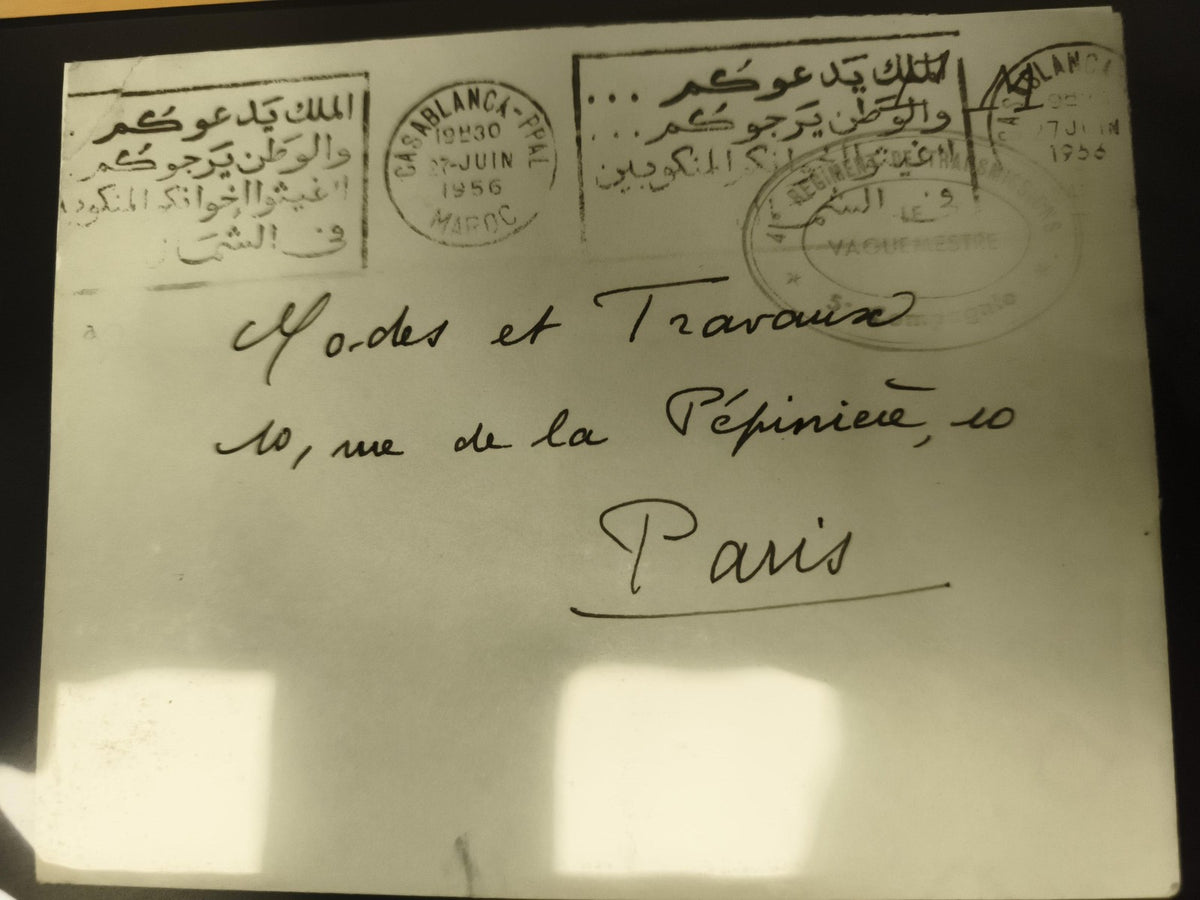 الملك يدعوكم
والوطن يرجوكم
اغيثوا إخوانكم المنكوبين
في الشمال
CASABLANCA-PPAL
19H30
27-JUIN
1956
MAROC
الملك يدعوكم ...
والوطن يرجوكم ...
المنكوبين
في الشم
CASABLANCA
27 JUIN
1956
REGIMENT DE TRANSMISSIONS
LE
VAGUEMESTRE
Compagnie
Modes et Travaux
10, rue de la Pépinière, 10
Paris